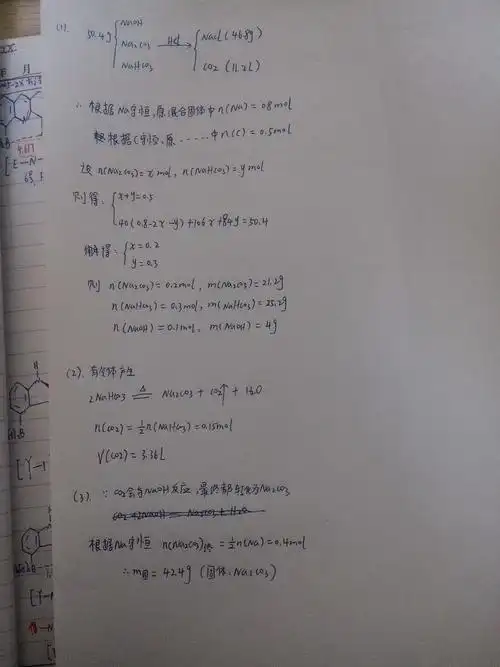 (1). 50.4g { NaOH
Na2CO3 —HCl→ { NaCl (46.8g)
NaHCO3 CO2 (11.2L)
∴ 根据Na守恒,原混合固体中n(Na)=0.8mol
根据C守恒,原......中n(C)=0.5mol
设n(Na2CO3)=x mol, n(NaHCO3)=y mol
则得: { x+y=0.5
40(0.8-2x-y)+106x+84y=50.4
解得: { x=0.2
y=0.3
则 n(Na2CO3)=0.2mol, m(Na2CO3)=21.2g
n(NaHCO3)=0.3mol, m(NaHCO3)=25.2g
n(NaOH)=0.1mol, m(NaOH)=4g
(2). 有气体产生
2NaHCO3 =△= Na2CO3 + CO2↑ + H2O
n(CO2)=½n(NaHCO3)=0.15mol
V(CO2)=3.36L
(3). ∵ CO2会与NaOH反应,最终都转化为Na2CO3
CO2+2NaOH = Na2CO3+H2O
根据Na守恒 n(Na2CO3)=½n(Na)=0.4mol
∴m固=42.4g (固体:Na2CO3)